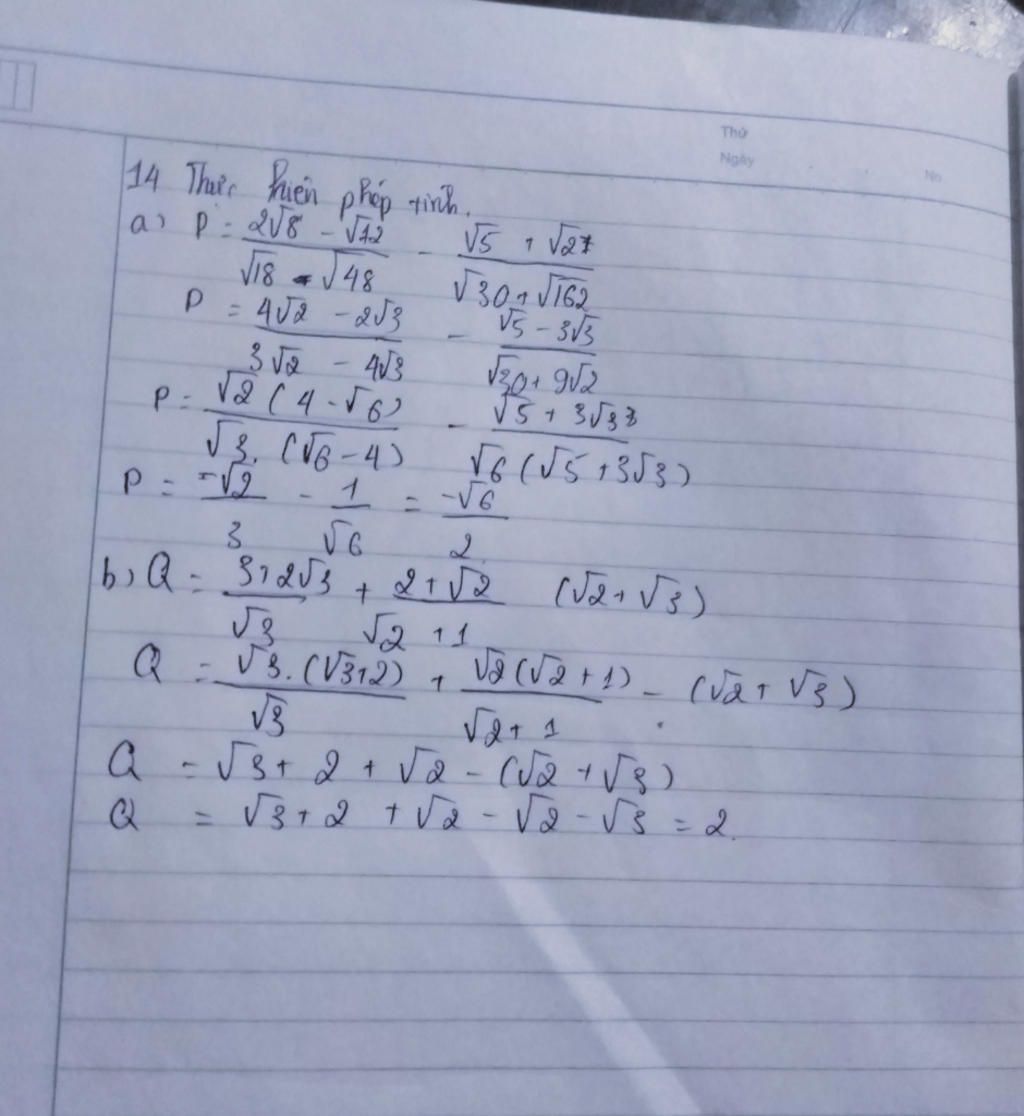 Thứ
Ngày
No
14 Thực hiện phép tính.
a) P = (2√8 - √12)/(√18 - √48) - (√5 + √27)/(√30 + √162)
P = (4√2 - 2√3)/(3√2 - 4√3) - (√5 - 3√3)/(√30 + 9√2)
P = (√2(4 - √6))/(√3.(√6 - 4)) - (√5 + 3√3)/(√6(√5 + 3√3))
P = (-√2)/3 - 1/√6 = (-√6)/2
b) Q = (3+2√3)/√3 + (2+√2)/(√2+1) (√2+√3)
Q = (√3.(√3+2))/√3 + (√2(√2+1))/(√2+1) - (√2+√3)
Q = √3 + 2 + √2 - (√2 + √3)
Q = √3 + 2 + √2 - √2 - √3 = 2.